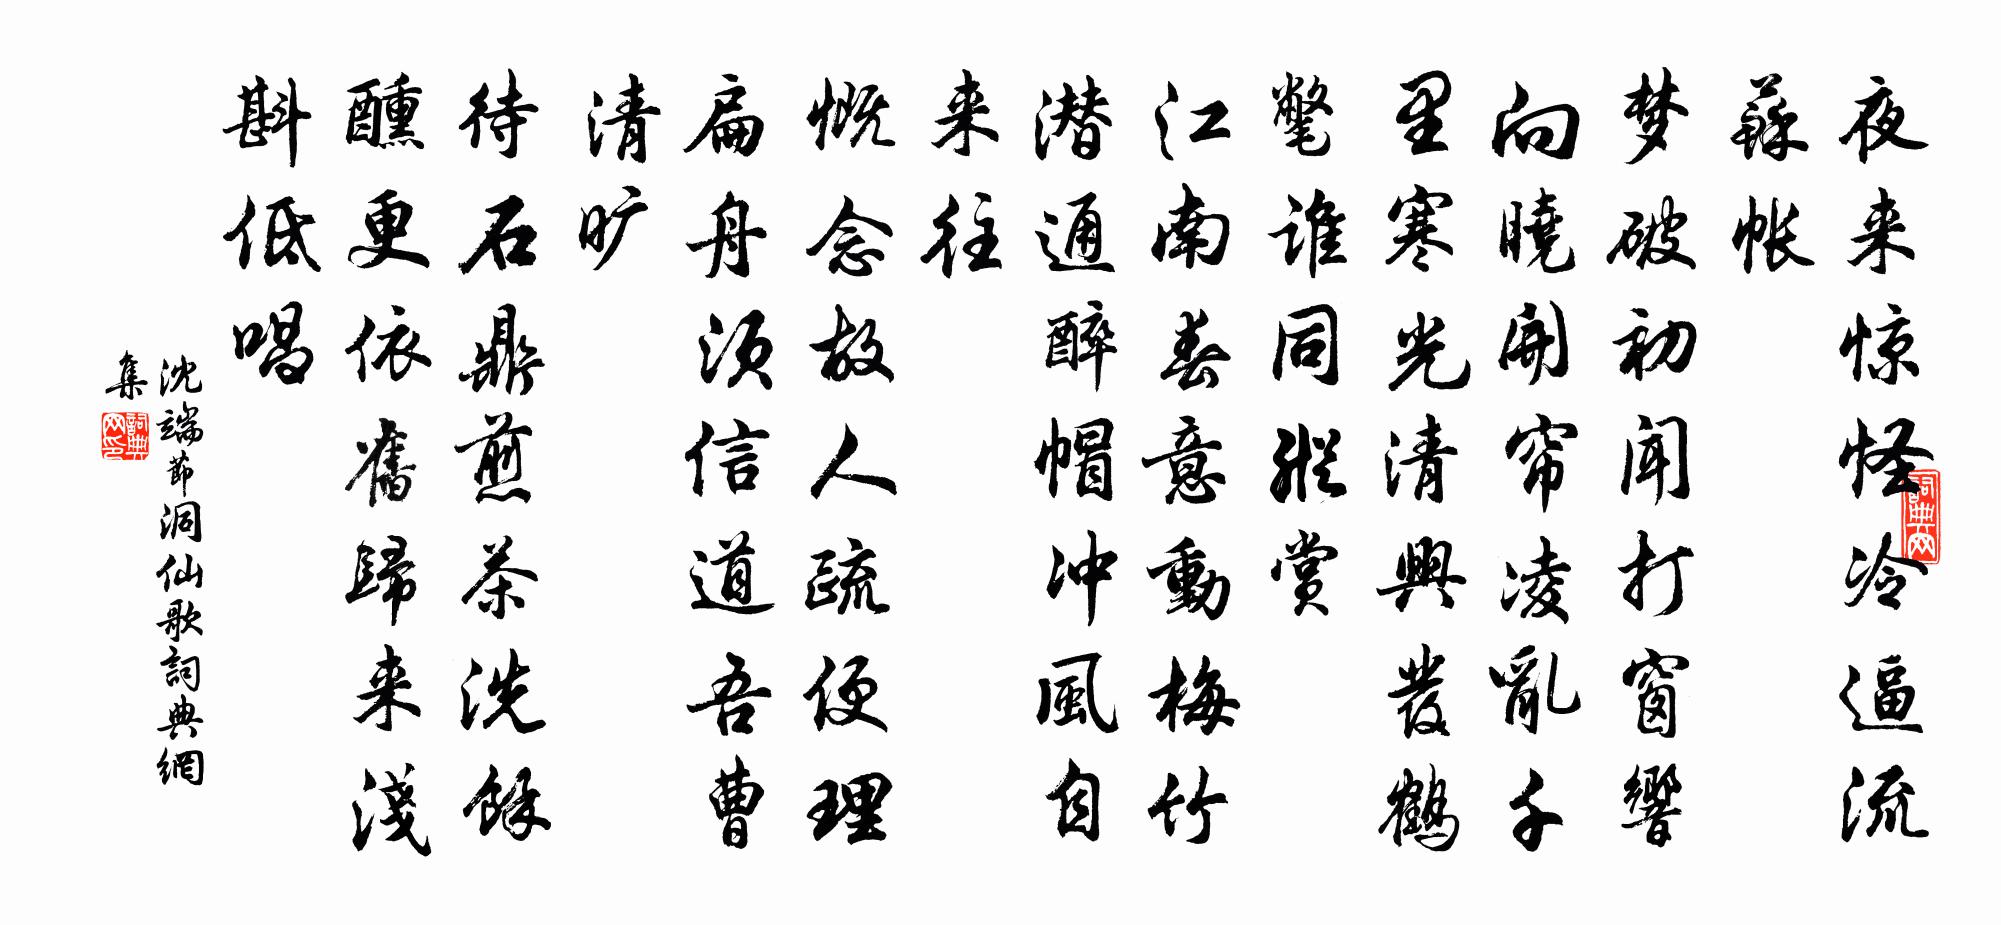 夜来惊怪冷逼流
蘇帐
梦破初闻打窗響
向曉開帘凌亂千
里寒光清興發鶴
氅谁同縱赏
江南春意動梅竹
潜通醉帽冲風自
来往
慨念故人疏便理
扁舟须信道吾曹
清旷
待石鼎煎茶洗餘
醺更依舊歸来淺
斟低唱
沈端節洞仙歌詞典網
集
詞典网
詞典网印